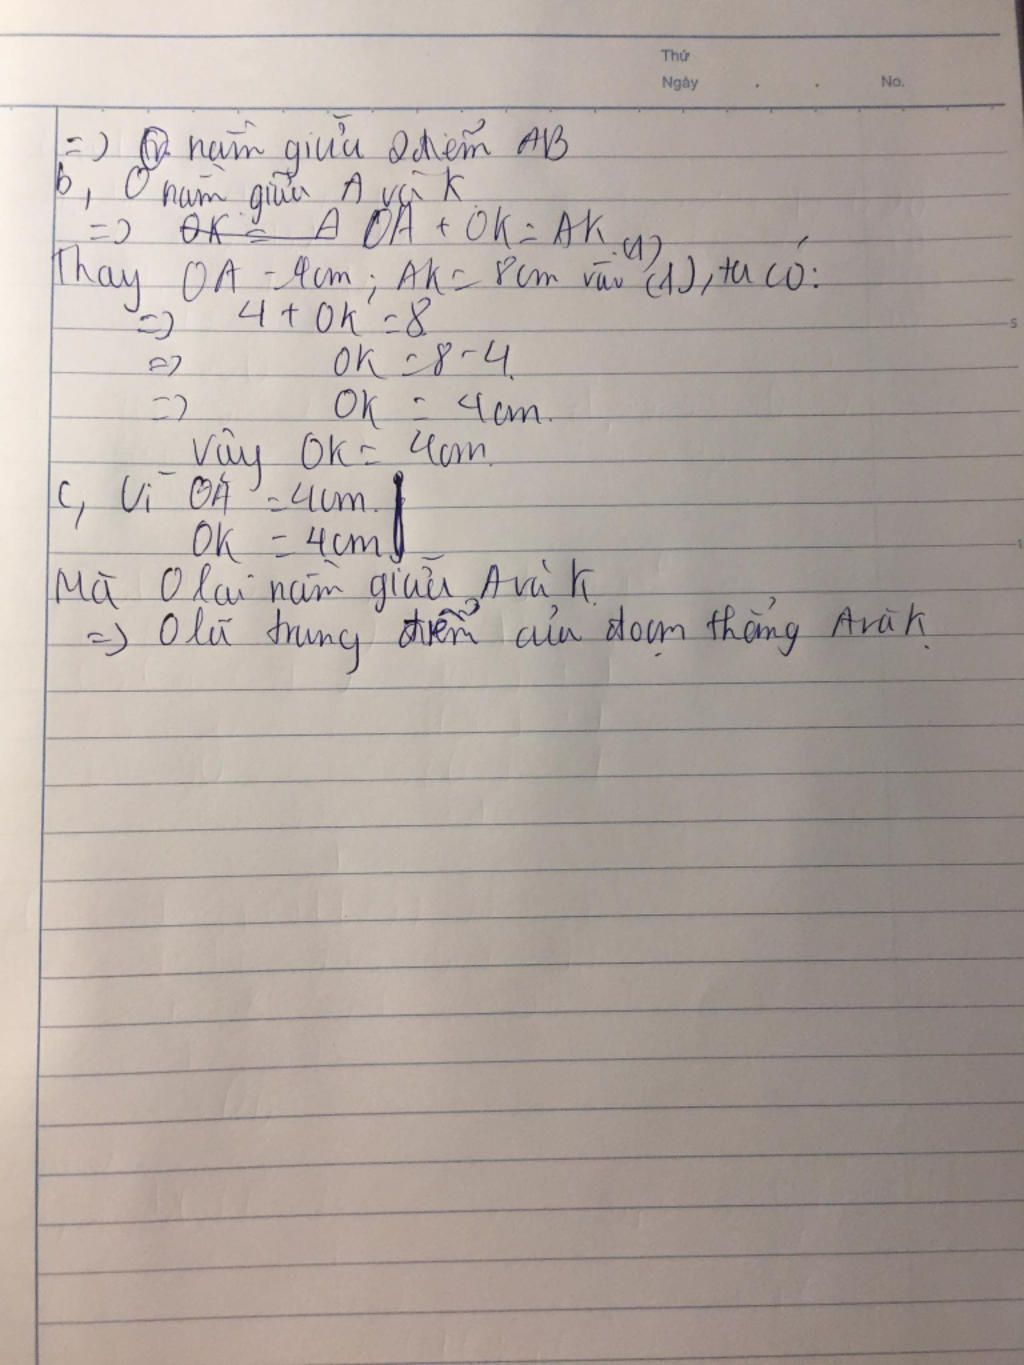 Thứ
Ngày . . No.
=> O nằm giữa 2 điểm AB
b, O nằm giữa A và K
=> OK = A OA + OK = AK (1)
Thay OA = 4cm ; AK = 8cm vào (1), ta có:
=> 4 + OK = 8
5
=> OK = 8 - 4
=> OK = 4cm.
Vậy OK = 4cm.
C, Vì OA = 4cm.
OK = 4cm
1
Mà O lại nằm giữa A và K
=> O là trung điểm của đoạn thẳng A và K.